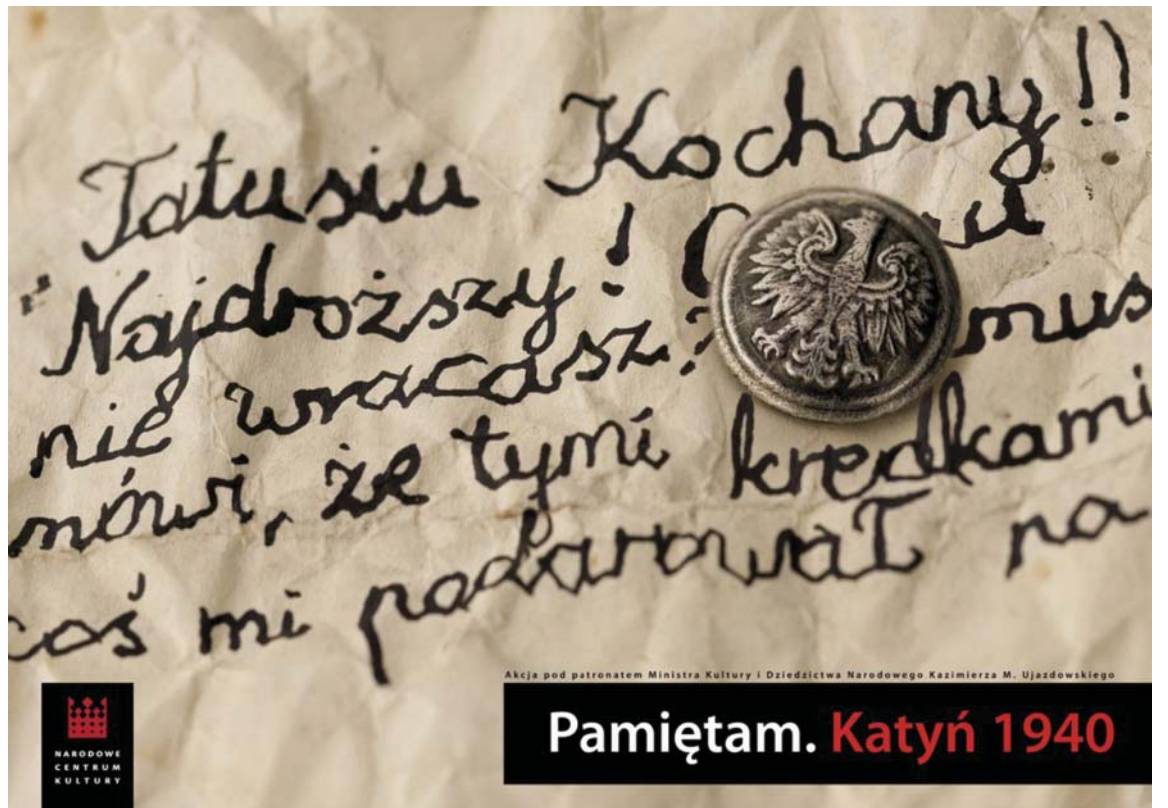 Tatusiu Kochany!!
Najdroższy!
nie wracasz? mus
mówi, że tymi kredkami
coś mi podarował na
Akcja pod patronatem Ministra Kultury i Dziedzictwa Narodowego Kazimierza M. Ujazdowskiego
Pamiętam. Katyń 1940
NARODOWE
CENTRUM
KULTURY